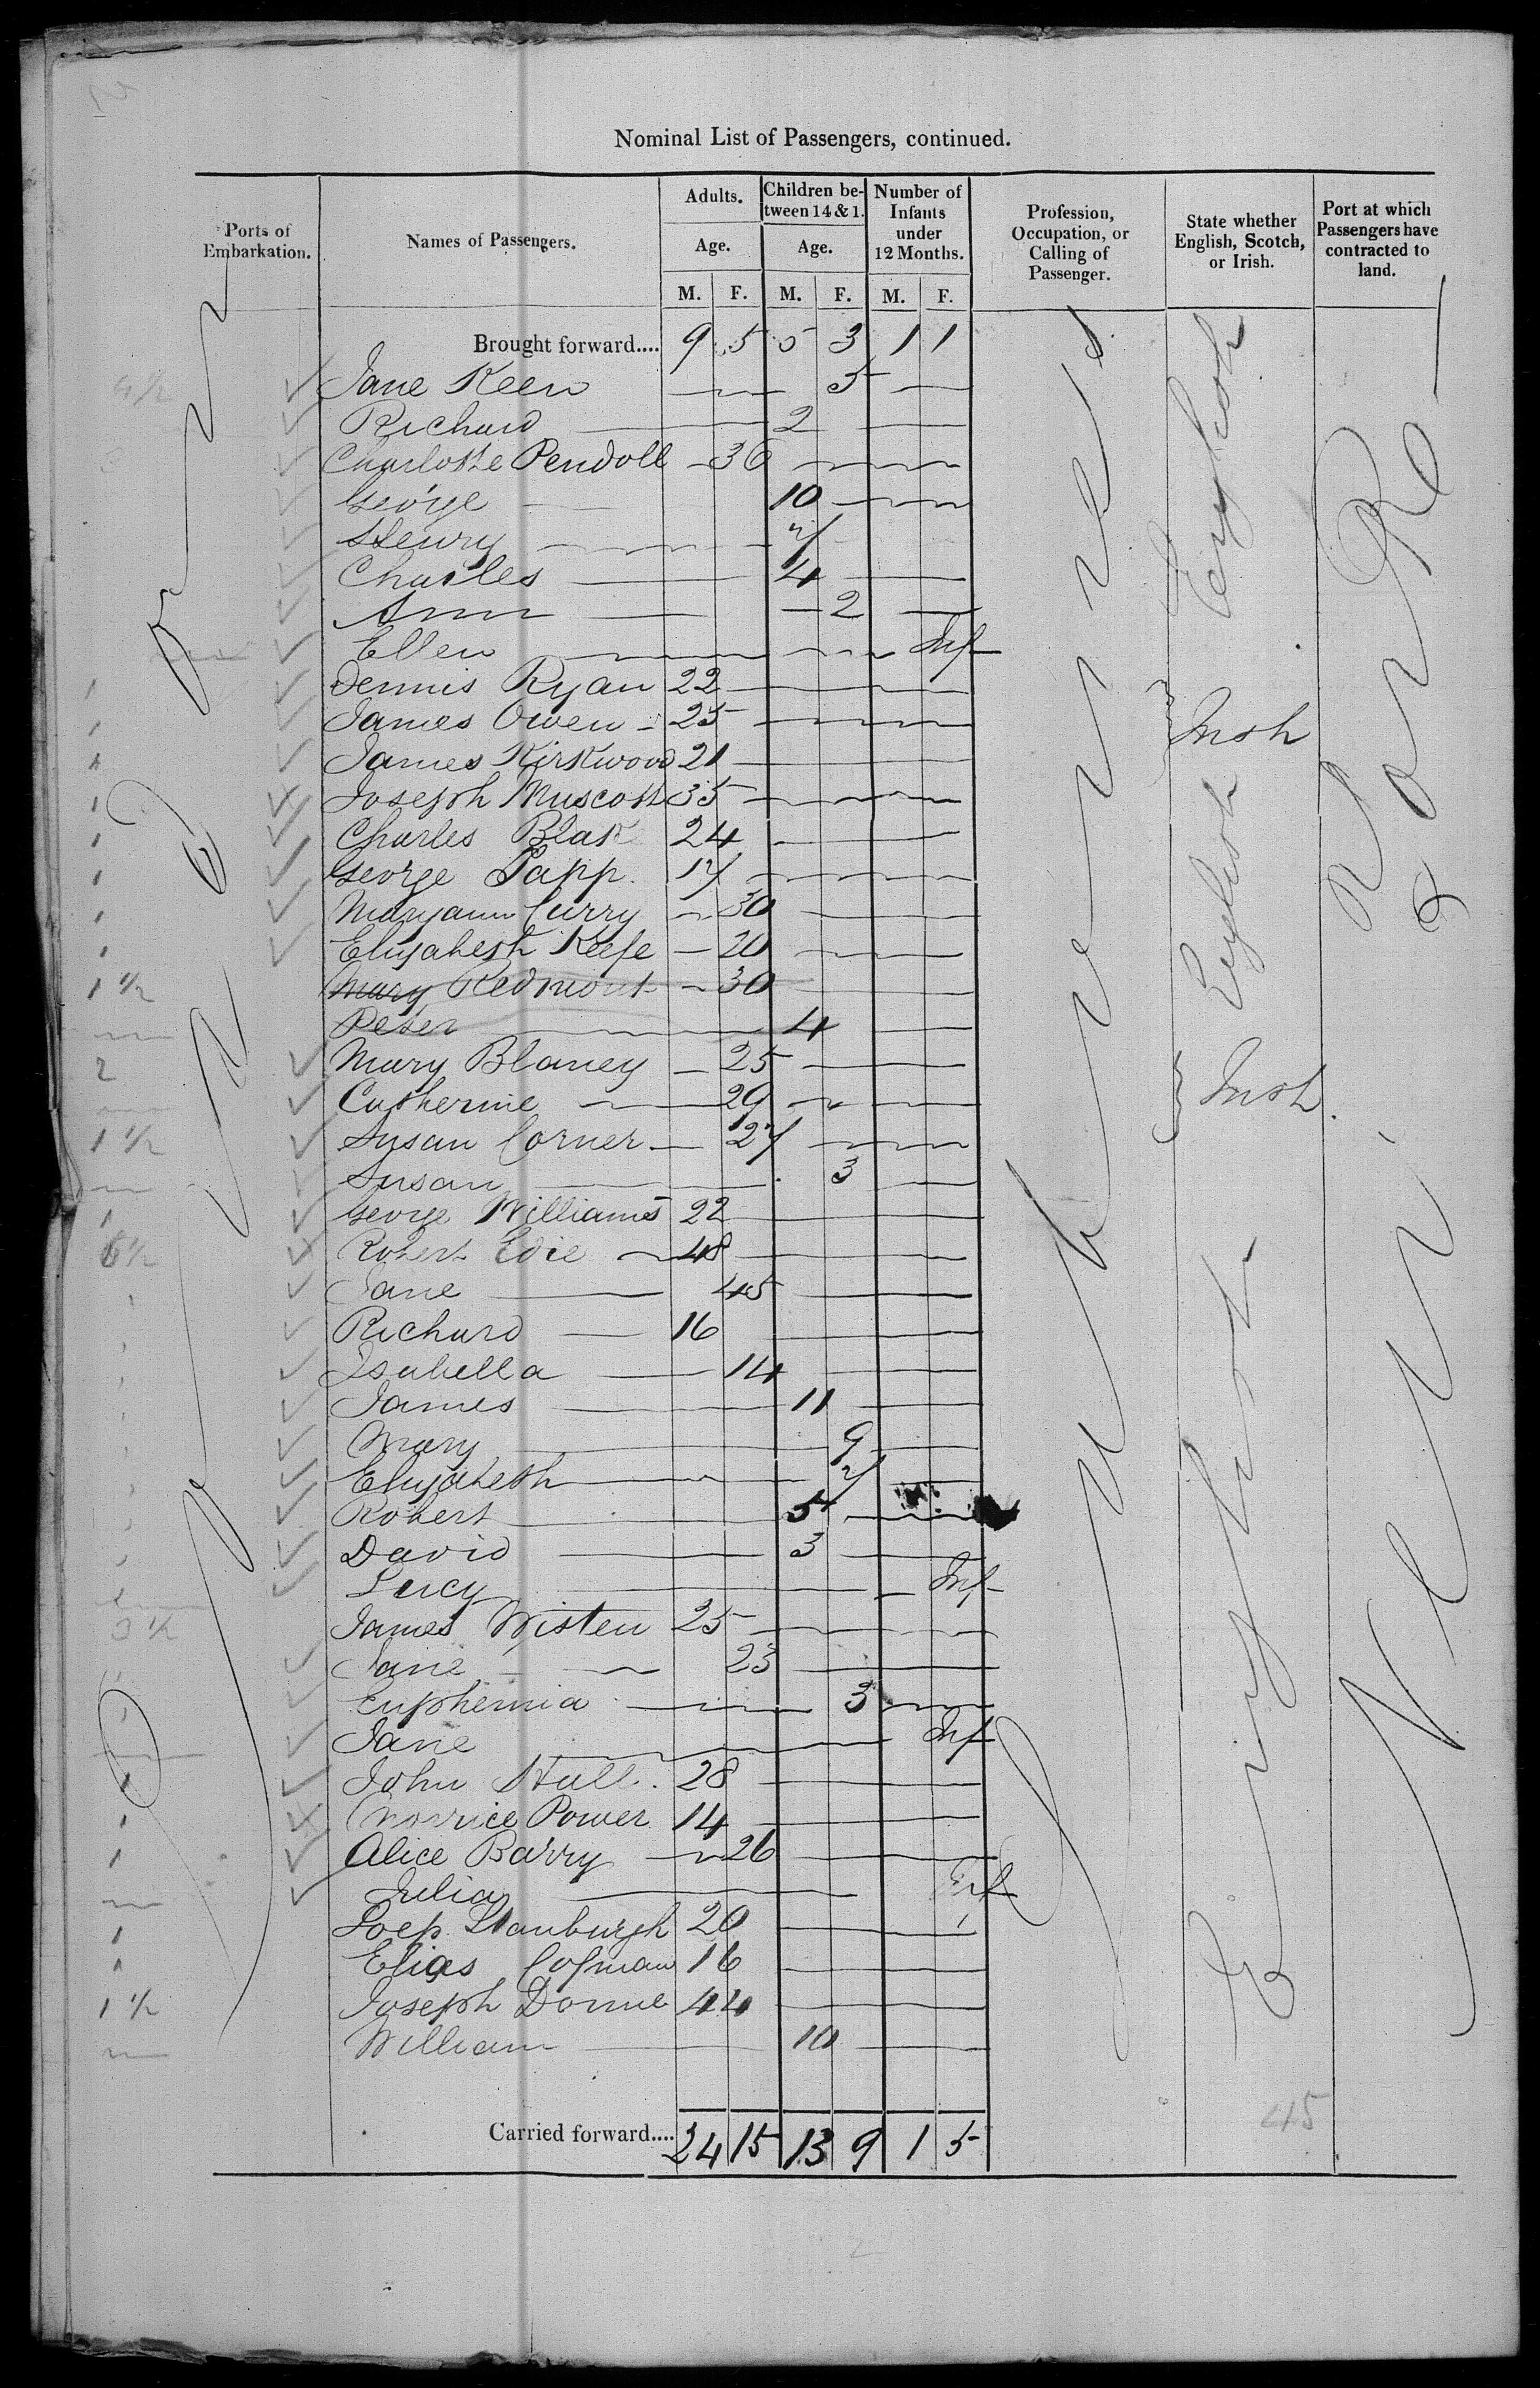 Nominal List of Passengers, continued.
Ports of Embarkation. Names of Passengers. Adults. Age. M. F. Children between 14 & 1. Age. M. F. Number of Infants under 12 Months. M. F. Profession, Occupation, or Calling of Passenger. State whether English, Scotch, or Irish. Port at which Passengers have contracted to land.
Brought forward.... 9 5 5 3 1 1
Jane Keen 5
Richard 2
Charlotte Pendoll 36
George 10
Henry 7
Charles 4
Ann 2
Ellen Inf
Dennis Ryan 22
James Owen 25
James Kirkwood 21
Joseph Muscott 35
Charles Blak 24
George Papp. 17
Maryann Curry 30
Elizabeth Keefe 20
Mary Redmont 30
Peter 4
Mary Blaney 25
Catherine 29
Susan Corner 27
Susan 3
George Williams 22
Robert Edie 48
Jane 45
Richard 16
Isabella 14
James 11
Mary 9
Elizabeth 7
Robert 5
David 3
Lucy Inf
James Wisten 25
Jane 23
Euphemia 3
Jane Inf
John Hall. 28
Morrice Power 14
Alice Barry 26
Julia Inf
20
Elias Cofman 16
Joseph Donne 44
William 10
Carried forward.... 24 15 13 9 1 5
Labourers
English
Irish
English
Irish.
English
New York
45